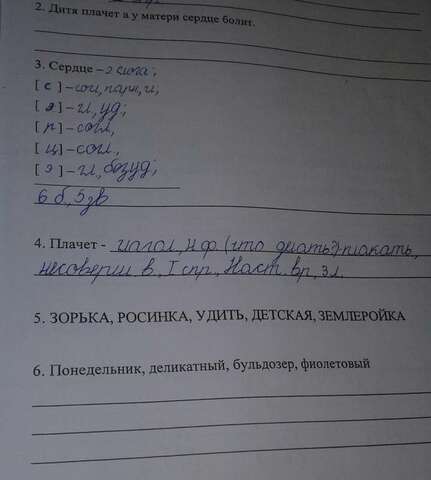 2. Дитя плачет а у матери сердце болит.
3. Сердце – 2 слога;
[с] – согл, парн,
[э] – гл, уд,
[р] – согл,
[ц] – согл,
[э] – гл, безуд;
6 б, 5 зв
4. Плачет - глагол, Н ф (что делать?) плакать,
несоверш в, I спр, Наст. вр, 3 л.
5. ЗОРЬКА, РОСИНКА, УДИТЬ, ДЕТСКАЯ, ЗЕМЛЕРОЙКА
6. Понедельник, деликатный, бульдозер, фиолетовый